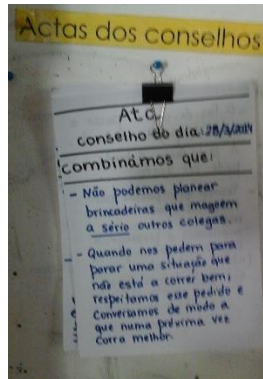 Actas dos conselhos
Ata
conselho do dia: 28/3/2014
combinámos que:
- Não podemos planear
brincadeiras que magoem
a sério outros colegas.
- Quando nos pedem para
parar uma situação que
não está a correr bem,
respeitamos esse pedido e
conversamos de modo a
que numa próxima vez
corra melhor.